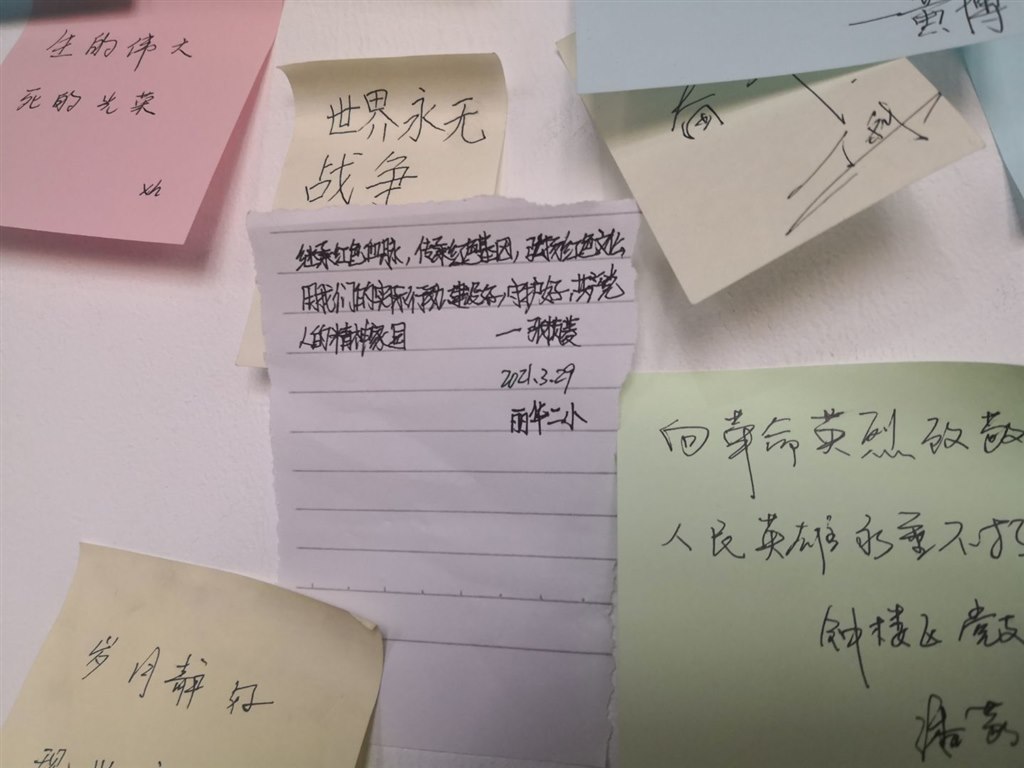 生的伟大
死的光荣
世界永无
战争
黄博
继承红色血脉，传承红色基因，弘扬红色文化
用我们的实际行动，建设好，守护好，共产党
人的精神家园
2021.3.29
丽华二小
向革命英烈致敬
人民英雄永垂不朽
钟楼区党支
岁月静好